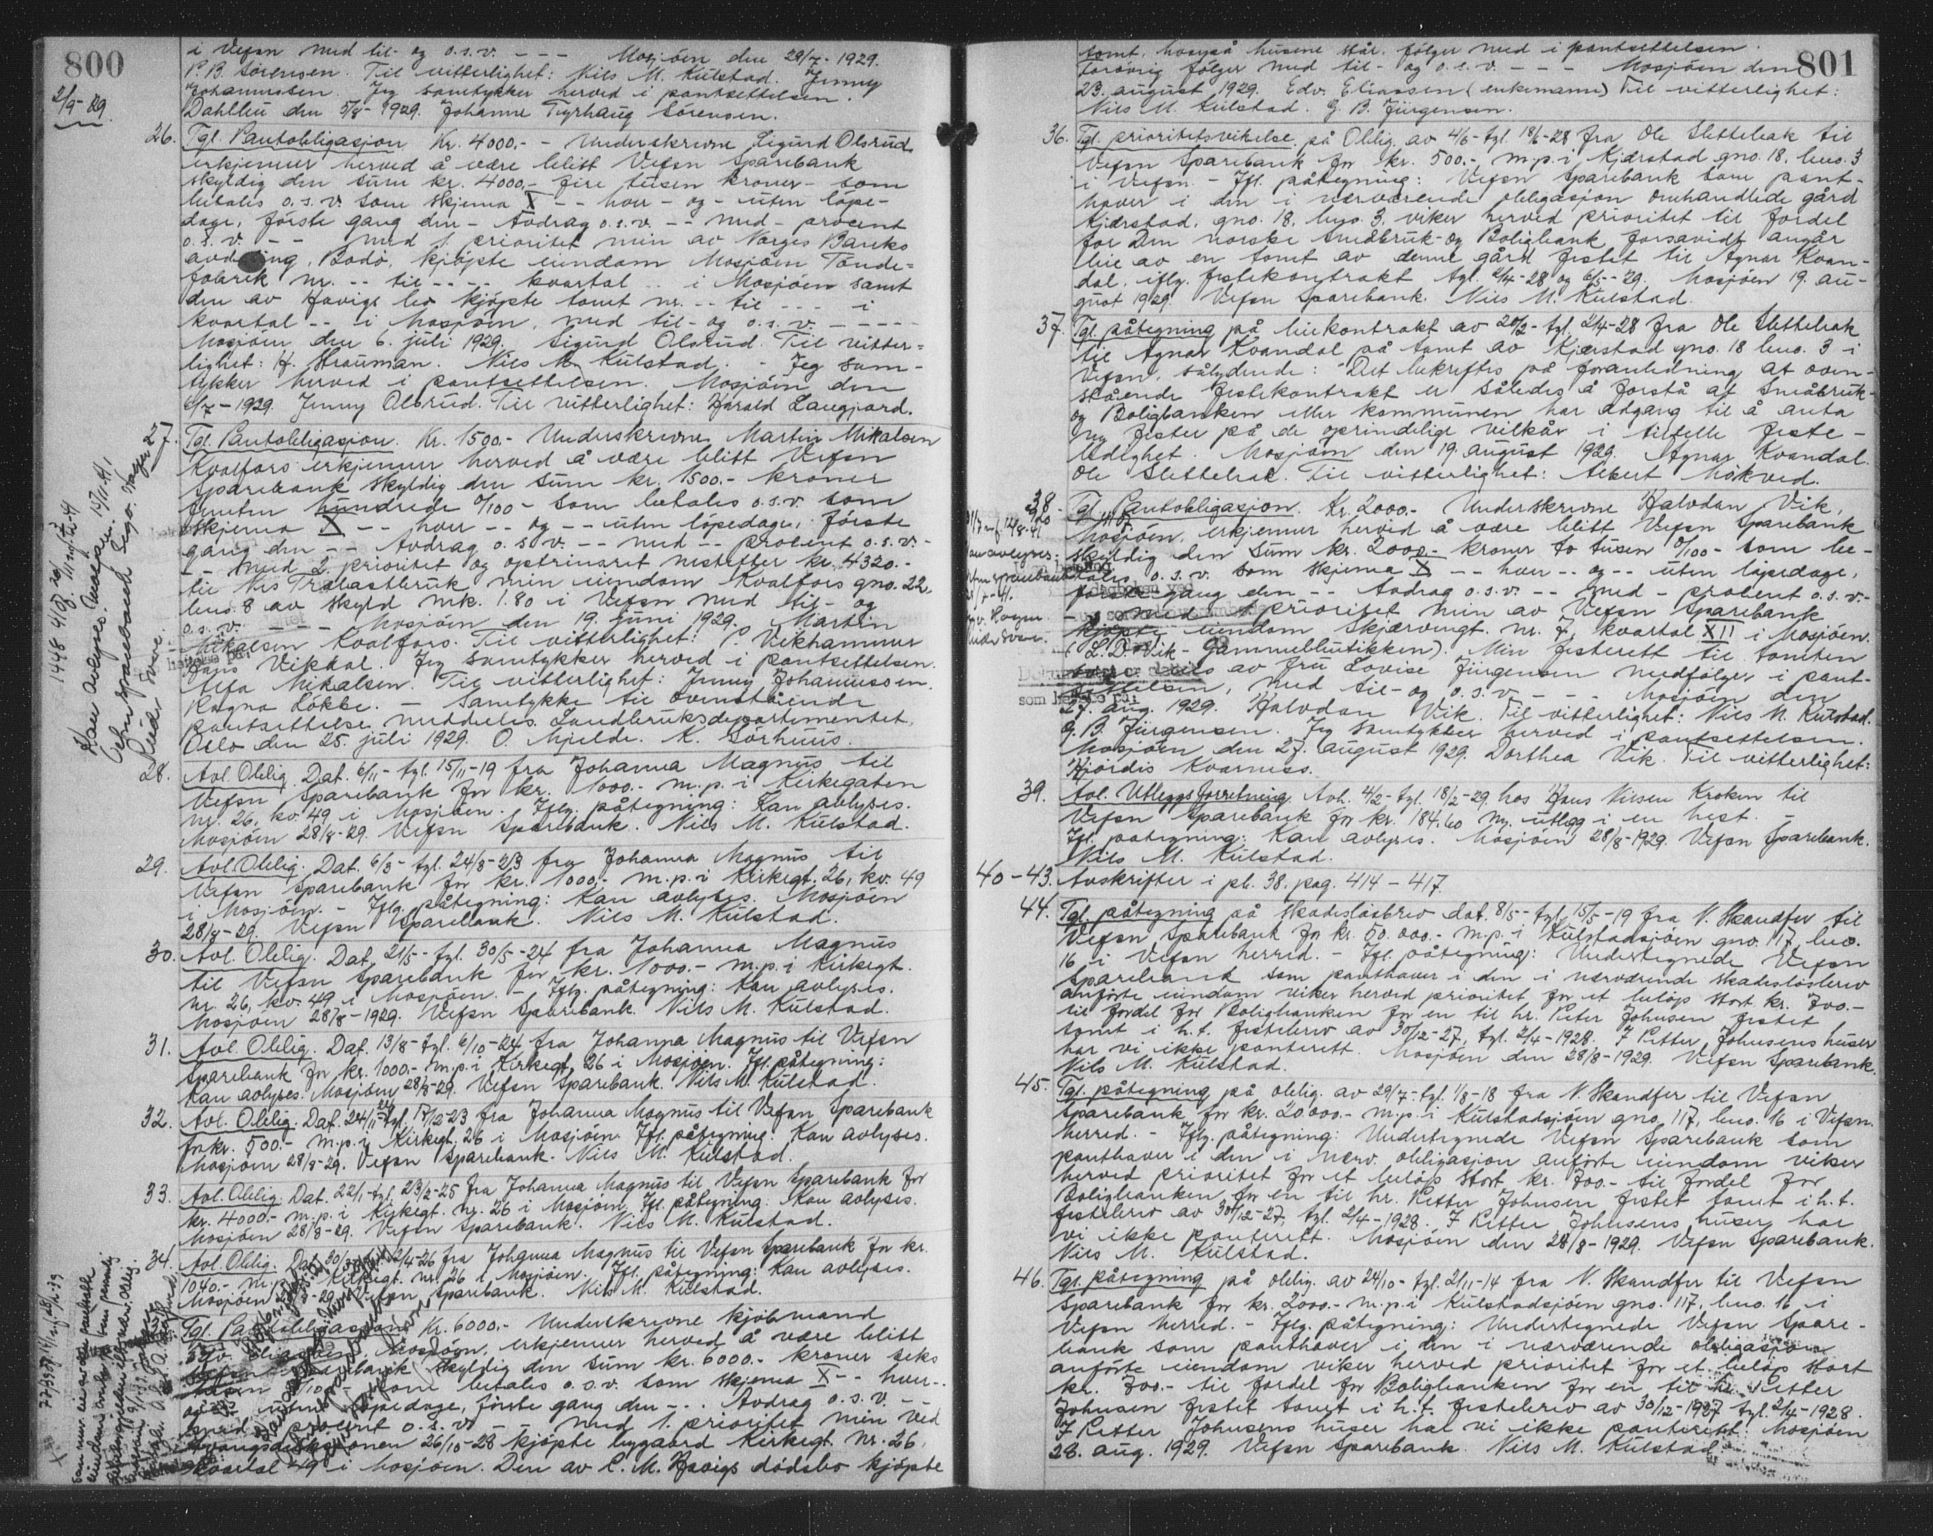 800
i Vefsn med til- og o.s.v. - - - Mosjöen den 29/7-1929.
P. B. Sörensen. Til vitterlighet: Nils M. Kulstad. Jenny
Johannessen. Jeg samtykker herved i pantsettelsen.
2/9-29.
Dahllien den 5/8-1929. Johanne Tyrhaug Sörensen.
26. Tgl. Pantobligasjon Kr. 4000.- - Underskrevne Sigurd Olsrud
erkjenner herved å være blitt Vefsn Sparebank
skyldig den sum kr. 4000,- fire tusen kroner - som
betales o.s.v. som skjema X - - hver - og - uten löpe-
dage, förste gang den - Avdrag o.s.v. - - med - procent
o.s.v. - - med 1 prioritet min av Norges Banks
avdeling, Bodö, kjöpte eiendom Mosjöen Tönde-
fabrik nr. - - til - - - - kvartal - - i Mosjöen samt
den av Havigs bo kjöpte tomt nr. - - til - - - i
kvartal - - i Mosjöen, med til- og o.s.v. - - - - -
Mosjöen den 6. juli 1929. Sigurd Olsrud. Til vitter-
lighet: H. Strauman. Nils M. Kulstad. - Jeg sam-
tykker herved i pantsettelsen. Mosjöen den
6/7-1929. Jenny Olsrud. Til vitterlighet: Harald Langjord.
27. Tgl. Pantobligasjon. Kr. 1500.- Underskrevne Martin Mikalsen
Kvalfors erkjenner herved å være blitt Vefsn
Sparebank skyldig den sum kr. 1500.- kroner
femten hundrede 0/100 - som betales o.s.v. som
skjema X - - hver - - og - - uten löpedage, förste
gang den - - Avdrag o.s.v. - - med - - procent o.s.v. -
- - med 2. prioritet og optrinsret nestefter kr. 4320.-
til Nes Trælastbruk min eiendom Kvalfors gno. 22,
bno. 8 av skyld mk. 1.80 i Vefsn med til- og
o.s.v. - - - - Mosjöen den 19. juni 1929. Martin
Mikalsen Kvalfors. Til vitterlighet: P. Vikhammer
Jens Vikdal. Jeg samtykker herved i pantsettelsen.
Alfa Mikalsen. Til vitterlighet: Jenny Johannessen.
Ragna Lökke. - Samtykke til ovenstående
pantsettelse meddeles. Landbruksdepartementet,
Oslo den 25. juli 1929. O. Mjelde. K. Sörhuus.
28. Avl. Oblig. Dat. 6/11 - tgl. 15/11-19 fra Johanna Magnus til
Vefsn Sparebank for kr. 1000.- m.p. i Kirkegaten
nr. 26, kv. 49 i Mosjöen. Iflg. påtegning: Kan avlyses.
Mosjöen 28/8-29. Vefsn Sparebank. Nils M. Kulstad.
29. Avl. Oblig. Dat. 6/8 - tgl. 24/8-23 fra Johanna Magnus til
Vefsn Sparebank for kr. 1000.- m.p. i Kirkegt. 26, kv. 49
i Mosjöen. - Iflg. påtegning: Kan avlyses. Mosjöen
28/8-29. Vefsn Sparebank. Nils M. Kulstad.
30. Avl. Oblig. Dat. 21/5 - tgl. 30/5-24 fra Johanna Magnus
til Vefsn Sparebank for kr. 1000.- m.p. i Kirkegt.
nr. 26, kv. 49 i Mosjöen. - Iflg. påtegning: Kan avlyses.
Mosjöen 28/8-1929. Vefsn Sparebank. Nils M. Kulstad.
31. Avl. Oblig. Dat. 13/8 - tgl. 6/10-24 fra Johanna Magnus til Vefsn
Sparebank for kr. 1000.- m.p. i Kirkegt. 26 i Mosjöen. Ifl. påtegning:
Kan avlyses. Mosjöen 28/8-29. Vefsn Sparebank. Nils M. Kulstad.
32. Avl. Oblig. Dat. 24/11 tgl. 17/12-23 fra Johanna Magnus til Vefsn Sparebank
for kr. 500.- m.p. i Kirkegt. 26 i Mosjöen. Ifl. påtegning: Kan avlyses.
Mosjöen 28/8-29. Vefsn Sparebank. Nils M. Kulstad.
33. Avl. Oblig. Dat. 22/1 - tgl. 23/2-25 fra Johanna Magnus til Vefsn Sparebank for
kr. 4000.- m.p. i Kirkegt. nr. 26 i Mosjöen. Ifl. påtegning: Kan avlyses.
Mosjöen 28/8-29. Vefsn Sparebank. Nils M. Kulstad.
34. Avl. Oblig. Dat. 30/3 tgl. 12/4-26 fra Johanna Magnus til Vefsn Sparebank for kr.
1040.- m.p. i Kirkegt. nr. 26 i Mosjöen. Ifl. påtegning: Kan avlyses.
Mosjöen 28/8-29. Vefsn Sparebank. Nils M. Kulstad.
Tgl. Pantobligasjon Kr. 6000.- Underskrevne kjöbmand
Edv. Eliassen, Mosjöen, erkjenner herved å være blitt
Vefsn Sparebank skyldig den sum kr. 6000.- kroner seks
tusen 0/100 - som betales o.s.v. som skjema X - - hver - -
og - uten löpedage, förste gang den - - . Avdrag o.s.v. -
med - procent o.s.v. - - med 1. prioritet min ved
tvangsauksjonen 26/10-28 kjöpte bygaard Kirkegt. nr. 26,
kvartal 49 i Mosjöen. Den av C. M. Havigs dödsbo kjöpte
1448
Kan avlyses. Mosjöen 15/11-41.
Vefsn Sparebank
801
tomt, hvorpå husene står, fölger med i pantsettelsen.
forövrig fölger med til- og o.s.v. - - - Mosjöen den
23. august 1929. Edv. Eliassen (enkemann) Til vitterlighet:
Nils M. Kulstad. G. B. Jürgensen.
36. Tgl. prioritetsvikelse på Oblig. av 4/6 - tgl. 18/6-28 fra Ole Slettebak til
Vefsn Sparebank for kr. 500.- m.p. i Kjærstad gno. 18, bno. 3
i Vefsn - Ifl. påtegning: Vefsn Sparebank som pant-
haver i den i nærværende obligasjon omhandlede gård
Kjærstad, gno. 18, bno. 3, viker herved prioritet til fordel
for Den norske Småbruk- og Boligbank forsavidt angår
leie av en tomt av denne gård festet til Agnar Kvan-
dal, iflg. festekontrakt tgl. 2/4-28 og 6/5-29. Mosjöen 19. au-
gust 1929. Vefsn Sparebank. Nils M. Kulstad.
37. Tgl. påtegning på leiekontrakt av 20/2 - tgl. 2/4-28 fra Ole Slettebak
til Agnar Kvandal på tomt av Kjærstad gno. 18 bno. 3 i
Vefsn, sålydende: "Det bekreftes på foranledning at oven-
stående festekontrakt er således å forstå at Småbruk-
og Boligbanken eller kommunen har adgang til å anta
ny fester på de oprindelige vilkår i tilfelle feste-
ledighet. Mosjöen den 19. august 1929. Agnar Kvandal.
Ole Slettebak. Til vitterlighet: Albert Mokved.
38. Tgl. Pantobligasjon. Kr. 2000.- Underskrevne Halvdan Vik,
Mosjöen, erkjenner herved å være blitt Vefsn Sparebank
skyldig den sum kr. 2000.- kroner to tusen 0/100 - som be-
tales o.s.v. som skjema X - - hver - - og - - uten löpedage,
förste gang den - - Avdrag o.s.v. - - med - procent o.s.v. -
- - med 1 prioritet min av Vefsn Sparebank
kjöpte eiendom Skjærvengt. nr. 7, kvartal XII i Mosjöen.
(L. D. Vik - Gammelbutikken). Min festerett til tomten
av fru Lovise Jürgensen medfölger i pant-
settelsen, med til- og o.s.v. - - - - Mosjöen den
27. aug. 1929. Halvdan Vik. Til vitterlighet: Nils M. Kulstad.
G. B. Jürgensen. Jeg samtykker herved i pantsettelsen.
Mosjöen den 27. august 1929. Dorthea Vik. Til vitterlighet:
Hjördis Kvarness.
39. Avl. Utleggsforretning. Avh. 4/2 - tgl. 18/2-29 hos Hans Nilsen Kroken til
Vefsn Sparebank for kr. 184.60 m. utlegg i en hest. -
Ifl. påtegning: Kan avlyses. Mosjöen 28/8-1929. Vefsn Sparebank.
Nils M. Kulstad.
40-43. Avskrifter i pb. 38. pag. 414 - 417.
44. Tgl. påtegning på skadeslösbrev dat. 8/5 - tgl. 15/5-19 fra N. Skandfer til
Vefsn Sparebank for kr. 50.000.- m.p. i Kulstadsjöen gno. 117, bno.
16 i Vefsn herred. - Ifl. påtegning: Undertegnede Vefsn
Sparebank som panthaver i den i nærværende skadeslösbrev
anförte eiendom viker herved prioritet for et belöp stort kr. 700.-
til fordel for Boligbanken for en til hr. Peter Johnsen festet
tomt i h.t. festebrev av 30/12-27, tgl. 2/4-1928. I Petter Johnsens huser
har vi ikke panterett. Mosjöen den 28/8-1929. Vefsn Sparebank.
Nils M. Kulstad.
45. Tgl. påtegning på oblig. av 29/7 - tgl. 1/8-18 fra N. Skandfer til Vefsn
Sparebank for kr. 20000.- m.p. i Kulstadsjöen gno. 117, bno. 16 i Vefsn
herred. - Iflg. påtegning: Undertegnede Vefsn Sparebank som
panthaver i den i nærv. obligasjon anförte eiendom viker
herved prioritet for et belöp stort kr. 700.- til fordel for
Boligbanken for en til hr. Petter Johnsen festet tomt i h.t.
festebrev av 30/12-27, tgl. 2/4-1928. I Petter Johnsens huser har
vi ikke panterett. Mosjöen den 28/8-1929. Vefsn Sparebank.
Nils M. Kulstad.
46. Tgl. påtegning på oblig. av 24/10 - tgl. 2/11-14 fra N. Skandfer til Vefsn
Sparebank for kr. 2000.- m.p. i Kulstadsjöen gno. 117, bno. 16 i
Vefsn herred. - Iflg. påtegning: Undertegnede Vefsn Spare-
bank som panthaver i den i nærværende obligasjon
anförte eiendom viker herved prioritet for et belöp stort
kr. 700.- til fordel for Boligbanken for en til hr. Petter
Johnsen festet tomt i h.t. festebrev av 30/12-1927 tgl. 2/4-1928.
I Petter Johnsens huser har vi ikke panterett. Mosjöen
28. aug. 1929. Vefsn Sparebank. Nils M. Kulstad.